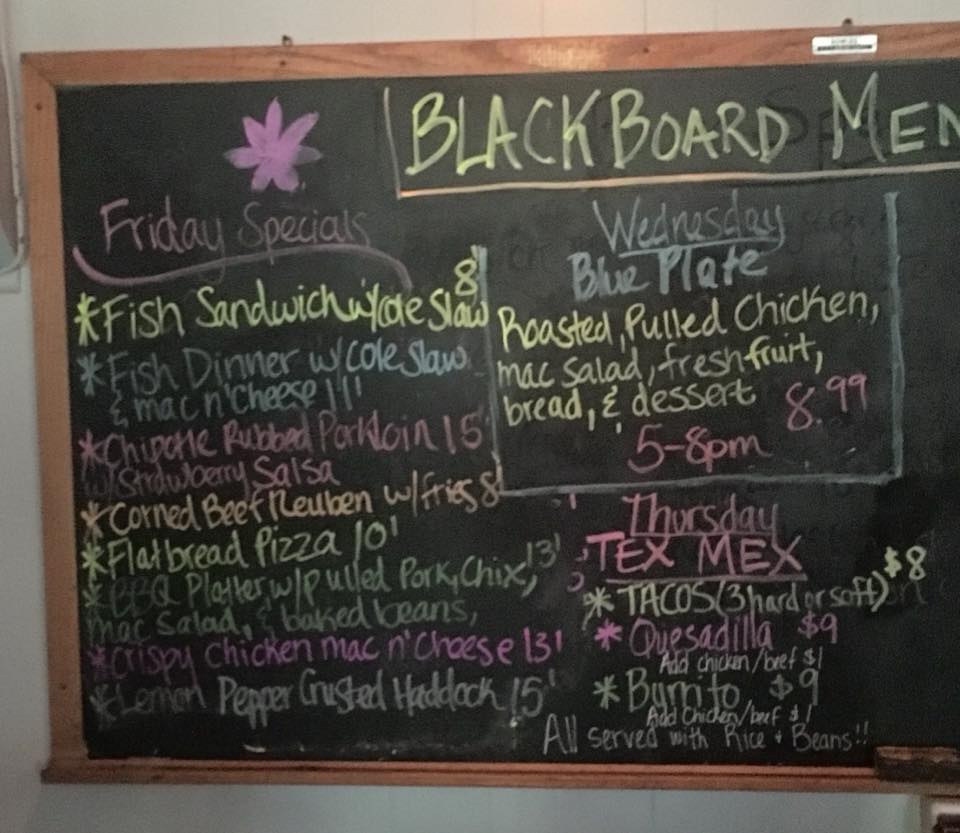 BLACKBOARD MEN
Friday Specials
*Fish Sandwich w/cole slaw 8'
*Fish Dinner w/cole slaw
& mac n'cheese 11'
*Chipotle Rubbed Porkloin 15'
w/Strawberry Salsa
*Corned Beef Reuben w/fries 8'
*Flatbread Pizza 10'
*BBQ Platter w/pulled Pork, Chix, 13'
mac salad, & baked beans,
*Crispy chicken mac n'cheese 13'
*Lemon Pepper Crusted Haddock 15'
Wednesday
Blue Plate
Roasted, Pulled Chicken,
mac salad, fresh fruit,
bread, & dessert 8.99
5-8pm
Thursday
TEX MEX
*TACOS (3 hard or soft) $8
*Quesadilla $9
Add chicken/beef $1
*Burrito $9
Add Chicken/beef $1
All served with Rice & Beans!!